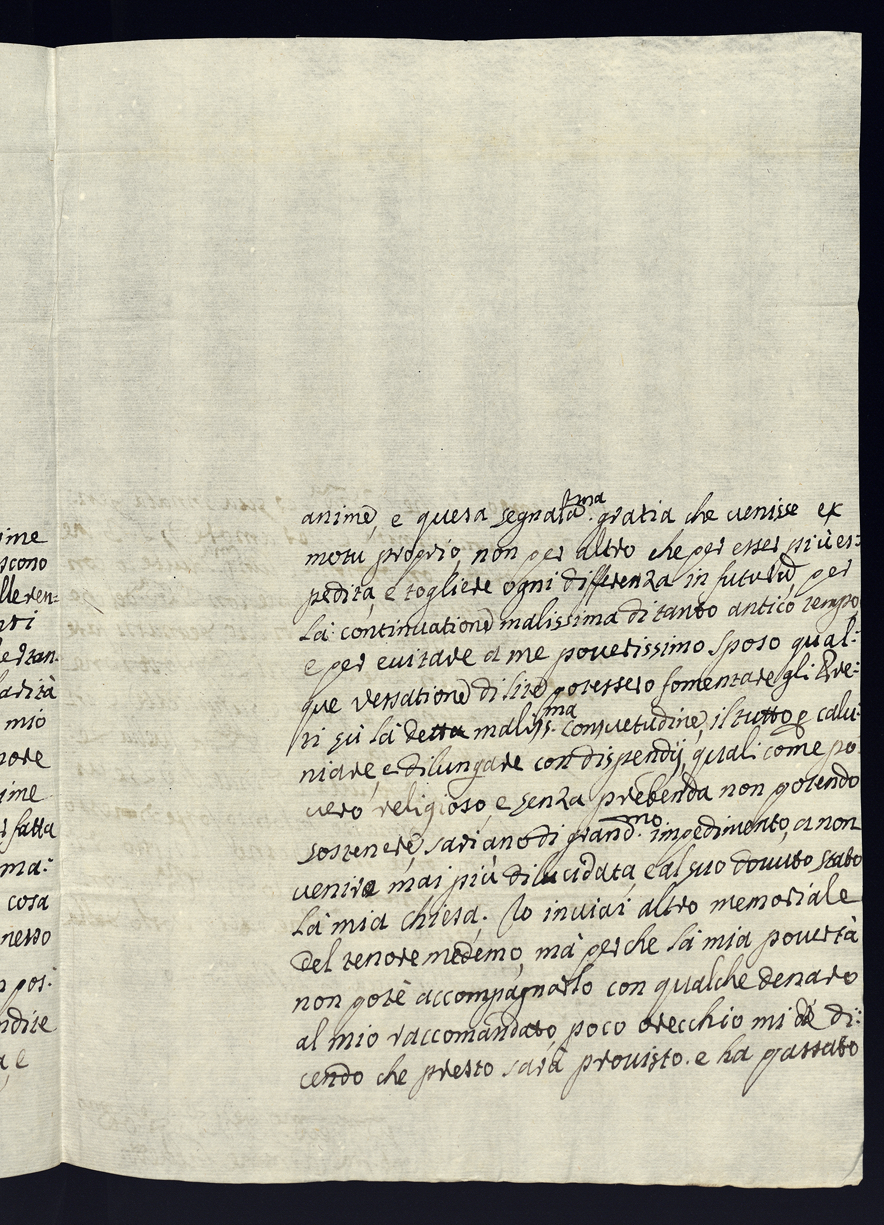 ime
scono
lle ren=
nti
e tan-
arità
mio
nore
ime
fatta
ma:
cosa
nesso
pos:
ndire
e
anime, e questa segnalat.ma gratia che venisse ex
motu proprio, non per altro che per esser più es:
pedita, e togliere ogni differenza in futuru, per
la continuatione malissima di tanto antico tempo,
e per evitare a me poverissimo sposo qual:
que versatione di lite potessero fomentare gli Ere:
ti sù la detta maliss.ma consuetudine, il tutto e calu:
niare e dilungare con dispendij, quali come po:
vero religioso, e senza prebenda non potendo
sostenere, sariano di grand.mo impedimento, a non
venire mai più dilucidata, e al suo dovuto stato
la mia chiesa. Io inviai altro memoriale
del tenore medemo, mà perche la mia povertà
non potè accompagnarlo con qualche denaro
al mio raccomandato, poco orecchio mi dà di:
cendo che presto sarà provisto. e ha passato